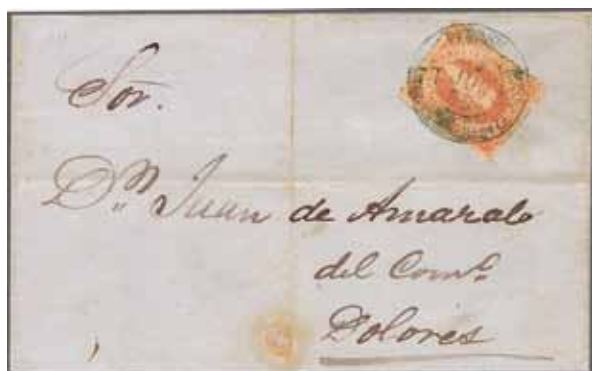 Sor.
Dn Juan de Amaralo
del Como
Dolores